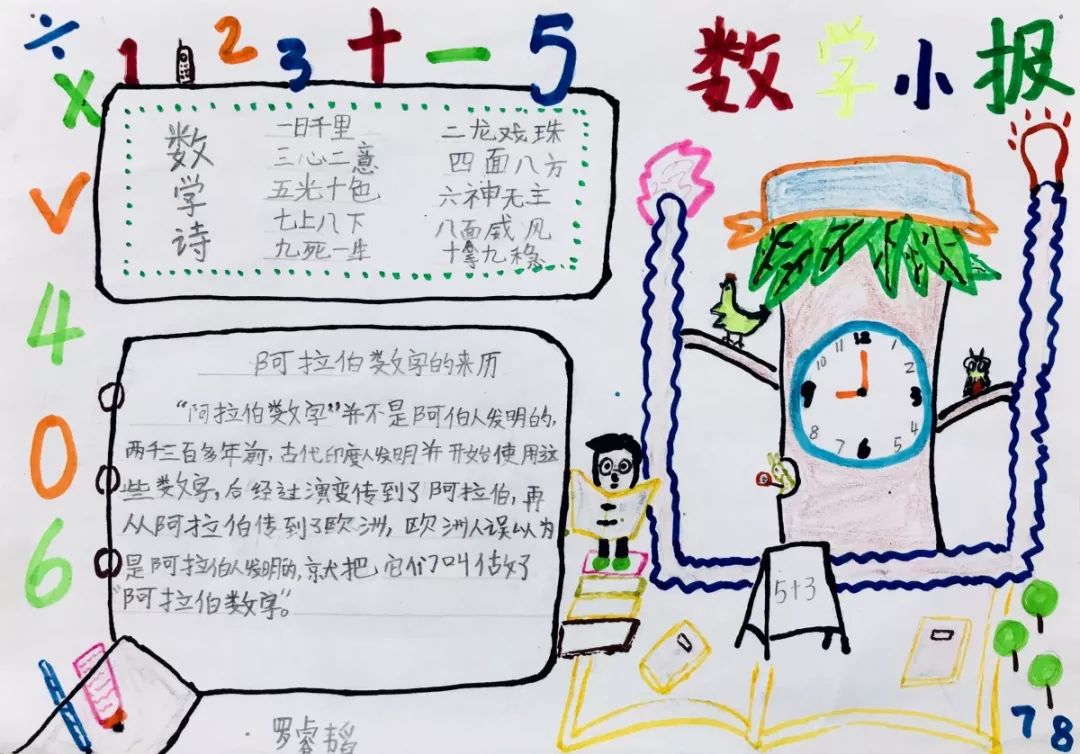 ÷ 1 2 3 + - 5
×
√
4
0
6
数学小报
数学诗
一日千里 二龙戏珠
三心二意 四面八方
五光十色 六神无主
七上八下 八面威风
九死一生 十拿九稳
阿拉伯数字的来历
“阿拉伯数字”并不是阿伯人发明的,
两千三百多年前,古代印度人发明并开始使用这
些数字,后经过演变传到了阿拉伯,再
从阿拉伯传到了欧洲,欧洲人误以为
是阿拉伯人发明的,就把它们叫做了
“阿拉伯数字”。
12
11 1
10 2
9 3
8 4
7 5
6
5+3
7 8